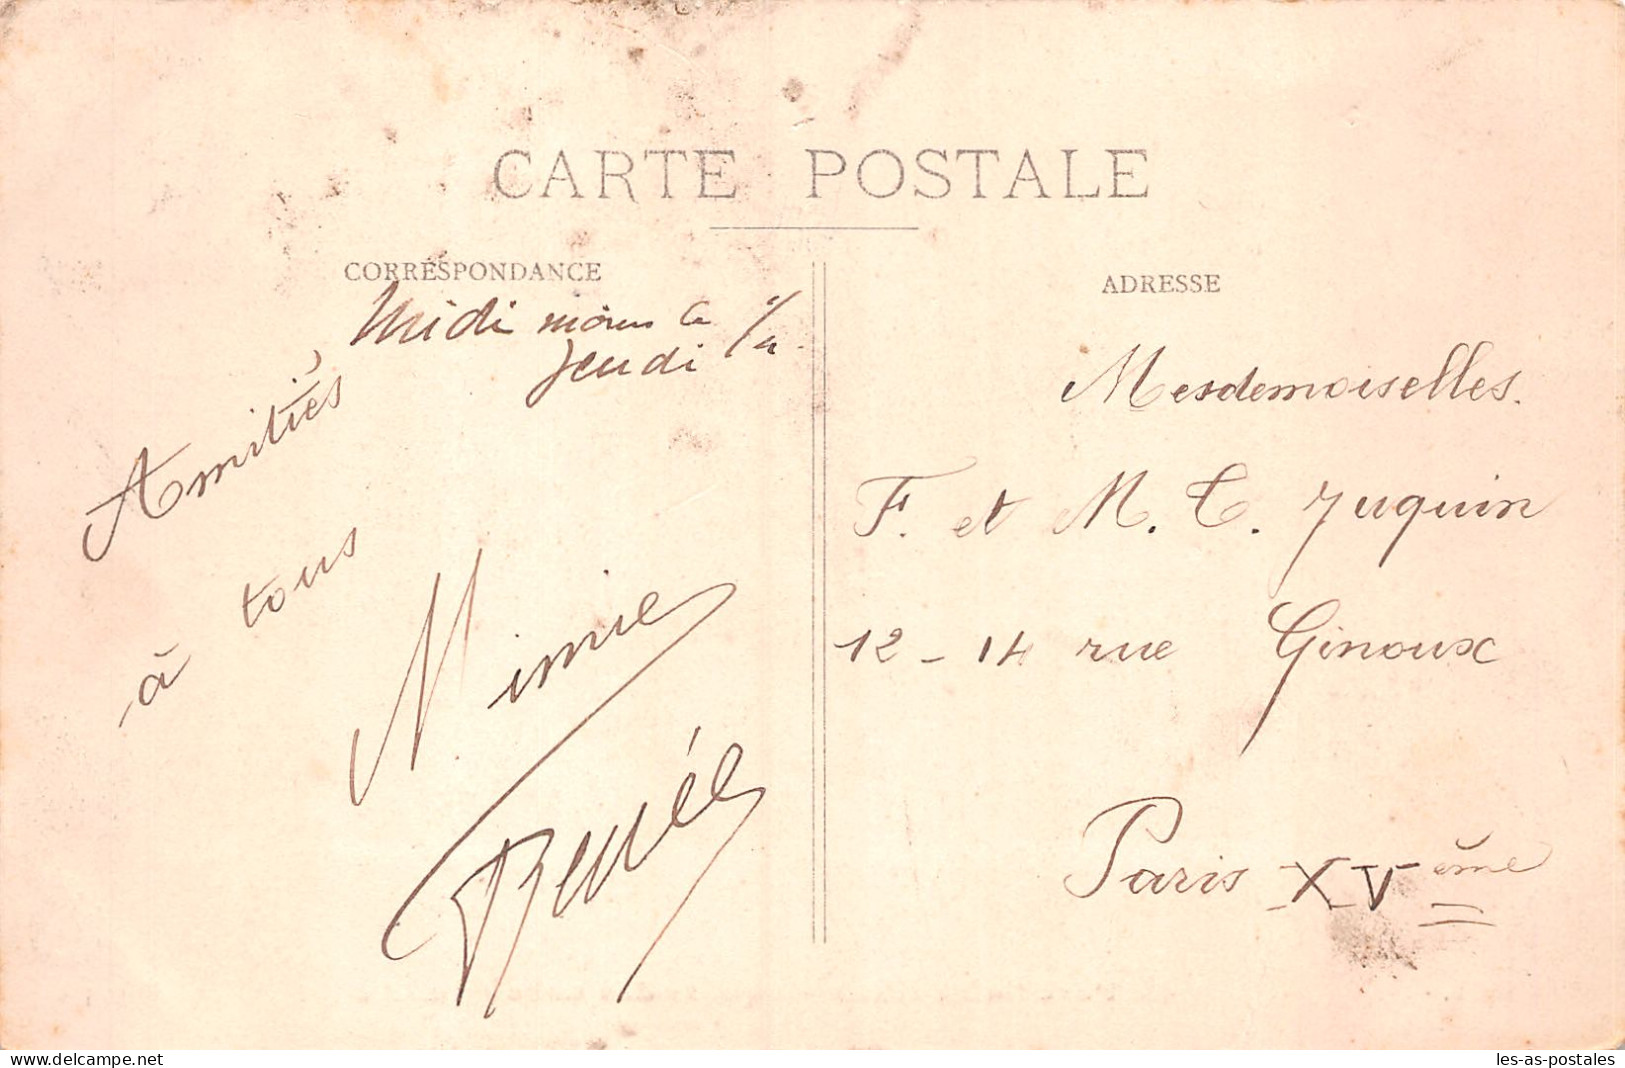 CARTE POSTALE
CORRESPONDANCE
Midi moins le 1/4.
Jeudi
Amitiés
à tous
Mimie
Renée
ADRESSE
Mesdemoiselles.
F. et M. T. Juquin
12 - 14 rue Ginoux
Paris XVème
www.delcampe.net
les-as-postales